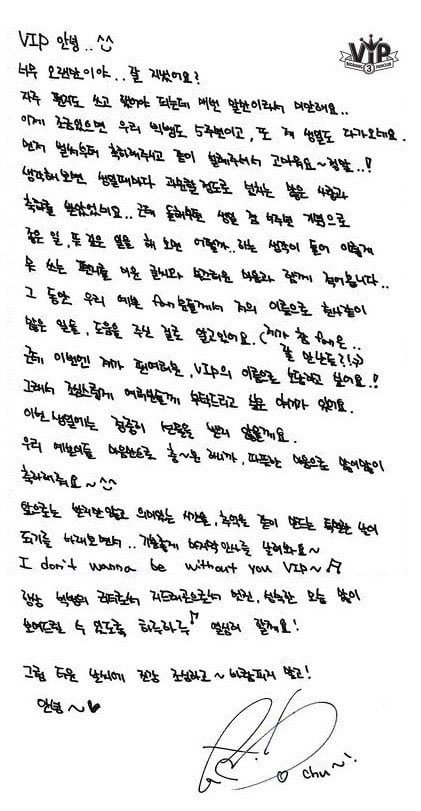 VIP 안녕..^^
VIP
BIGBANG 3 FANCLUB
너무 오랜만이야.. 잘 지냈어요?
자주 편지도 쓰고 했어야 되는데 매번 말만이라서 미안해요..
이제 조금있으면 우리 빅뱅도 5주년이고, 또 제 생일도 다가오네요.
먼저 벌써부터 축하해주시고 같이 설레주셔서 고마워요~ 정말..!!
생각해보면 생일때마다 과분할정도로 넘치는 많은 사랑과
축하를 받았었네요.. 근데 올해부턴 생일 겸 5주년 기념으로
좋은 일, 뜻 깊은 일을 해 보면 어떨까..하는 생각이 들어 이렇게
못 쓰는 편지를 미운 글씨와 부끄러운 마음과 함께 적어봅니다..
그 동안 우리 예쁜 fan분들께서 저의 이름으로 천사같이
많은 일들, 도움을 주신 걸로 알고있어요. (제가 참 fan은..
잘 만난듯?!:))
근데 이번엔 제가 먼저 여러분, VIP의 이름으로 보답하고 싶어요!!
그래서 조심스럽게 여러분들께 부탁드리고 싶은 이야기가 있어요.
이번 생일에는 정중히 선물을 받지 않을게요.
우리 예쁜이들 마음만으로 충~분 하니까, 따뜻한 마음으로 많이많이
축하해줘요~^^
앞으로는 받지만 않고 의미있는 시간을, 추억을 같이 만드는 특별한 날이
되기를 바래보면서.. 기분좋게 마지막 인사를 남겨봐요~
I don't wanna be without you VIP~♬
항상 빅뱅의 리더로서 지드래곤으로서 멋진, 성숙한 모습 많이
보여드릴 수 있도록 하루하루♪ 열심히 할게요!
그럼 더운 날씨에 건강 조심하고~ 바람피지 말고!
안녕~♥
chu~!